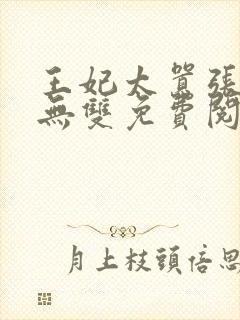 王妃太囂張
無雙免費閱
月上枝頭倍思